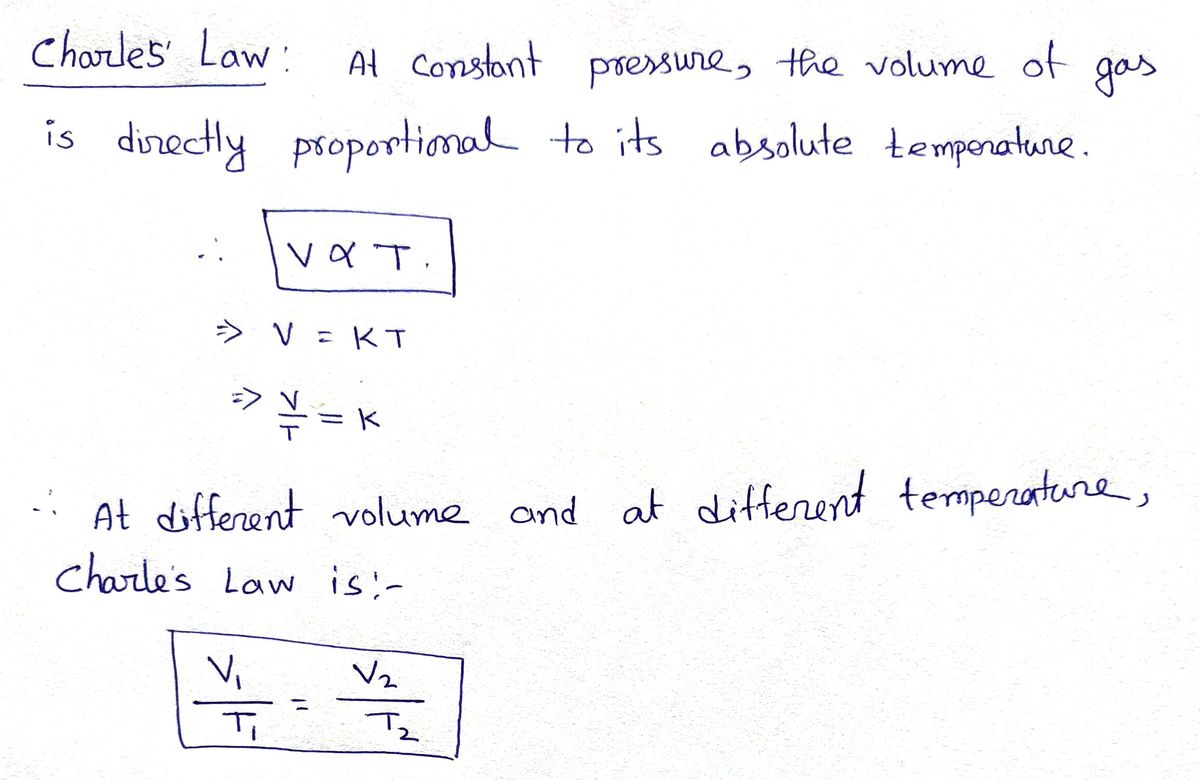 Charles' Law: At Constant pressure, the volume of gas
is directly proportional to its absolute temperature.
∴ V ∝ T.
⇒ V = KT
⇒ V/T = K
∴ At different volume and at different temperature,
Charle's Law is:-
V₁/T₁ = V₂/T₂